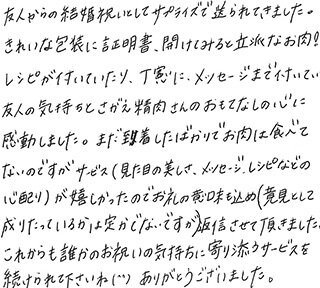 友人からの結婚祝いとしてサプライズで送られてきました。
きれいな包装に証明書、開けてみると立派なお肉!
レシピが付いていたり、丁寧に、メッセージまで付いてい
友人の気持ちとさがえ精肉さんのおもてなしの心に
感動しました。まだ到着したばかりでお肉は食べて
ないのですがサービス(見た目の美しさ、メッセージ、レシピなどの
心配り)が嬉しかったのでお礼の意味も込め(意見として
成りたっているかは定かでないですが)返信させて頂きました。
これからも誰かのお祝いの気持ちに寄り添うサービスを
続けられて下さいね(^^) ありがとうございました。